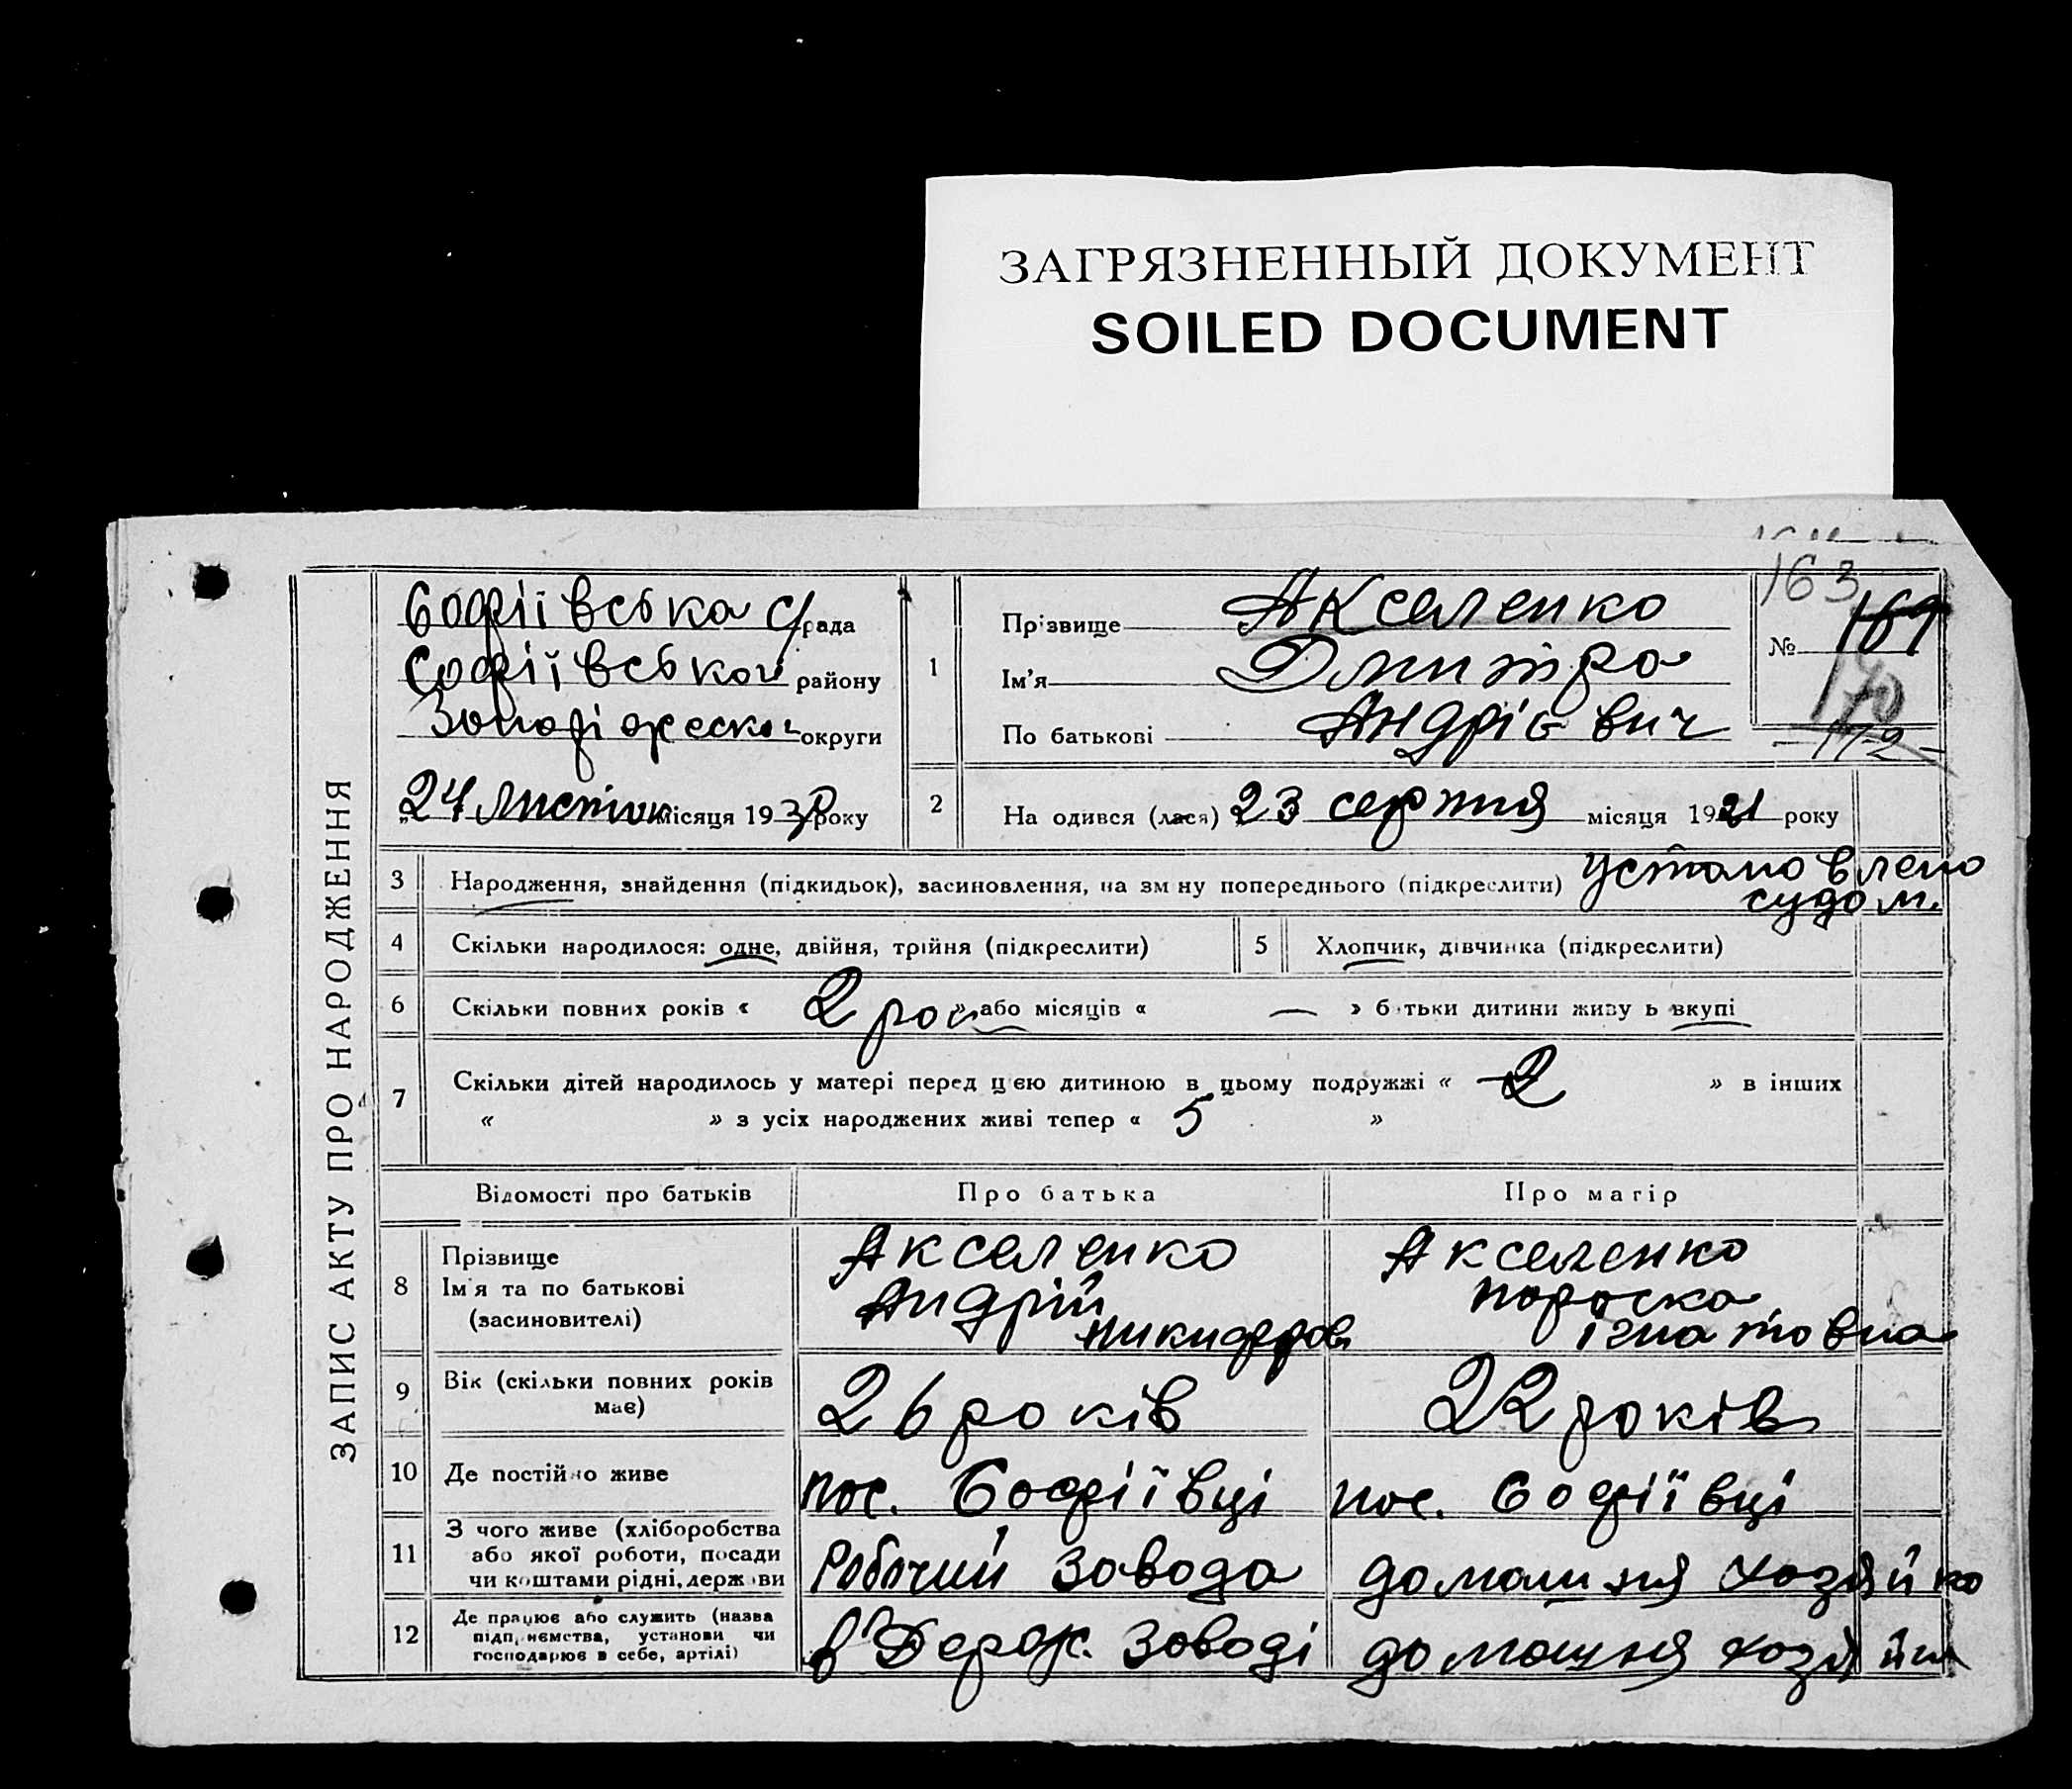 ЗАГРЯЗНЕННЫЙ ДОКУМЕНТ
SOILED DOCUMENT
ЗАПИС АКТУ ПРО НАРОДЖЕННЯ
Софіївська с/рада
Софіївськой району
округи
24 місяця 193 року
1
Прізвище Акселенко
Ім'я Дмитро
По батькові Андрієвич
163
№ 169
170
172
2
На одився (лася) 23 серпня місяця 1921 року
3
Народження, знайдення (підкидьок), засиновлення, на зм ну попереднього (підкреслити) Установлено
судом.
4
Скільки народилося: одне, двійня, трійня (підкреслити)
5
Хлопчик, дівчинка (підкреслити)
6
Скільки повних років « 2 рок » або місяців « — » б тьки дитини живу ь вкупі
7
Скільки дітей народилось у матері перед цею дитиною в цьому подружжі « 2 » в інших
« » з усіх народжених живі тепер « 5 »
Відомості про батьків
Про батька
Про матір
8
Прізвище
Ім'я та по батькові
(засиновителі)
Акселенко
Андрій
Никифоров
Акселенко
Пороска
Ігнатовна
9
Вік (скільки повних років
має)
26 років
22 років
10
Де постійно живе
пос. Софіївці
пос. Софіївці
11
З чого живе (хліборобства
або якої роботи, посади
чи коштами рідні, держави
Робочий завода
домашня хозяйка
12
Де працює або служить (назва
підприємства, установи чи
господарює в себе, артілі)
в Держ. Заводі
домашня